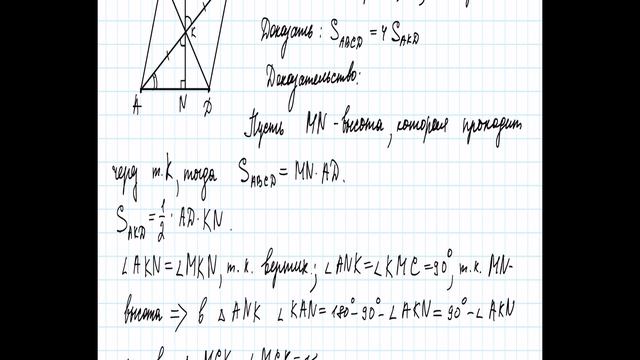 Доказать: S_ABCD = 4 S_AKD
Доказательство:
K
A N D
Пусть MN - высота, которая проходит
через т. K, тогда S_ABCD = MN · AD.
S_AKD = 1/2 · AD · KN.
∠AKN = ∠MKN, т.к. вертик.; ∠ANK = ∠KMC = 90°, т.к. MN-
высота => в △ ANK ∠KAN = 180° - 90° - ∠AKN = 90° - ∠AKN